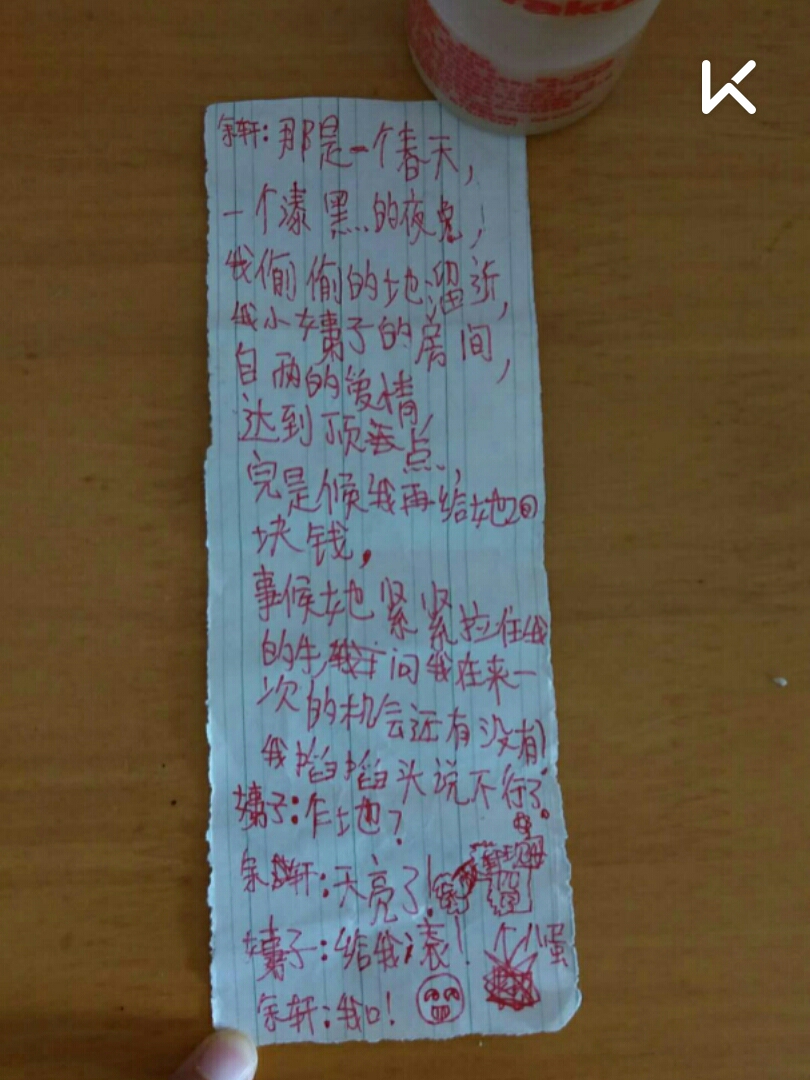 余轩：那是一个春天，
一个漆黑的夜晚，
我偷偷的地溜近，
我小嫂子的房间，
自两的爱情
达到顶点，
完是候我再给她20
块钱，
事候她紧紧拉住我
的手，问我在来一
次的机会还有没有！
我掐掐头说不行了。
嫂子：乍地？
余轩：天亮了！
嫂子：给我滚！个小蛋
余轩：我口！